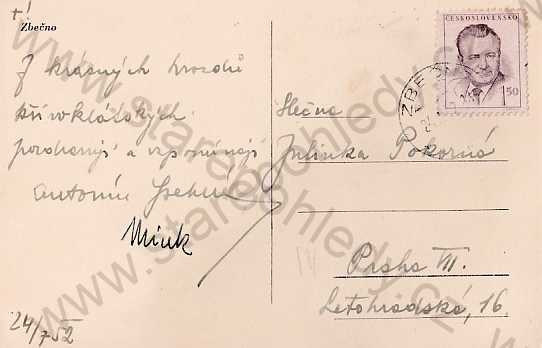 Zbečno
Z krásných hvozdů
křivoklátských
pozdravují a vzpomínají
Antonín
Mirek
24/7 52
ČESKOSLOVENSKO
1.50
ZBEČNO
Slečna
Julinka Pokorná
Praha VII.
Letohradská, 16.
www.starepohledy.cz